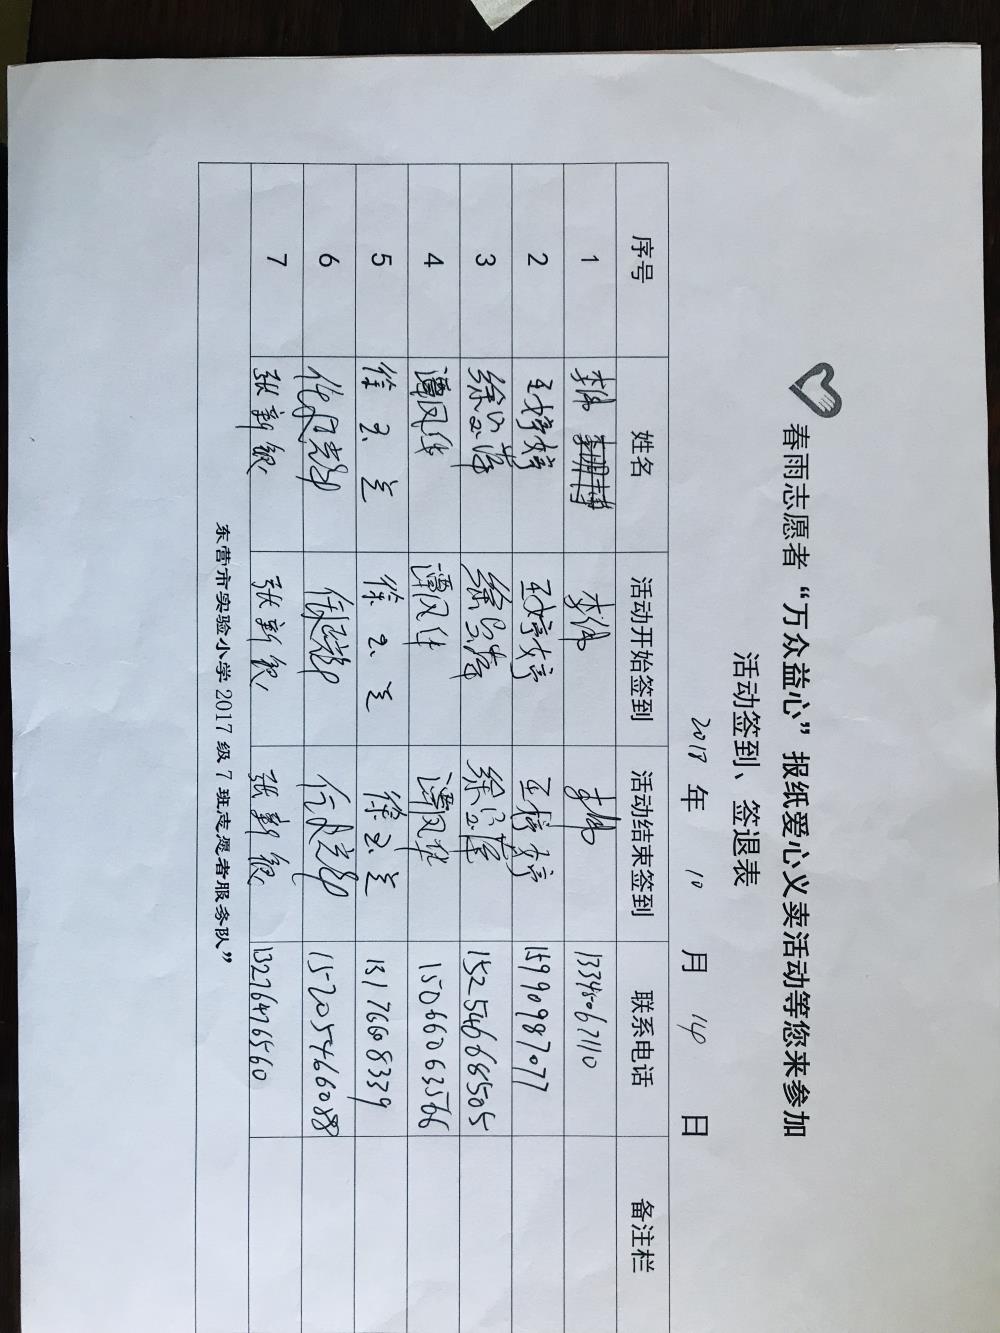 春雨志愿者“万众益心”报纸爱心义卖活动等您来参加
活动签到、签退表
2018 年 10 月 14 日
序号 姓名 活动开始签到 活动结束签到 联系电话 备注栏
1 李伟 李伟 李伟 13345067110
2 王婷婷 王婷婷 王婷婷 15990987077
3 15254668505
4 谭凤华 谭凤华 谭凤华 15066063566
5 徐玉兰 徐玉兰 徐玉兰 13176608339
6 15205466088
7 张新银 张新银 张新银 13276476560
东营市实验小学 2017 级 7 班志愿者服务队”